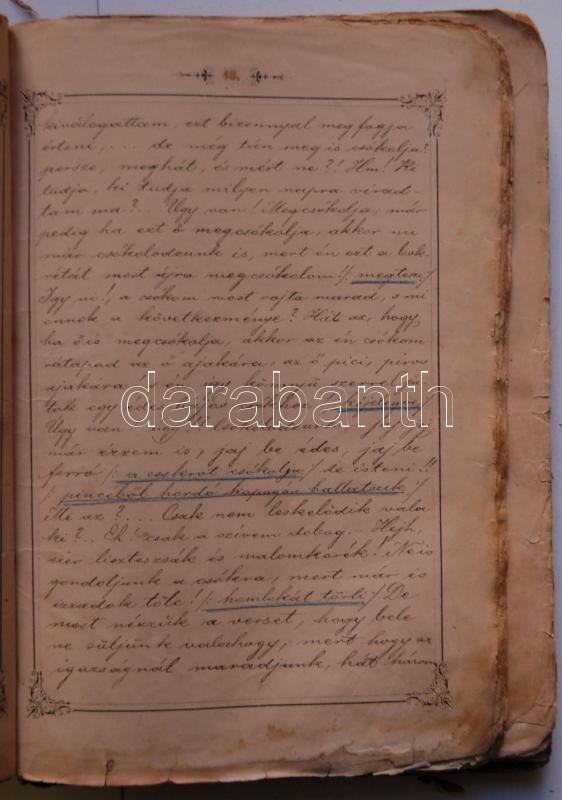 18.
kiválogattam, ezt bizonnyal meg fogja
érteni, ... de még tán meg is csókolja?
persze, meghát, és mért ne?! Hm! Ki
tudja, ki tudja milyen napra virad-
tam ma?.. Úgy van! Megcsókolja, már
pedig ha ezt ő megcsókolja, akkor mi
már csókolodzunk is, mert én ezt a bok-
rétát most újra megcsókolom! /: megteszi :/
Igy ni!, a csókom most rajta marad, s mi
ennek a következménye? Hát az, hogy
ha ő is megcsókolja, akkor az én csókom
rátapad az ő ajakára, az ő pici, piros
ajakára
tok egy
Úgy van
már érzem is, jaj be édes, jaj be
forró /: a csokrot csókolja :/ de isteni!!
/: pinczéből hordó kopogás hallatszik :/
Mi az?... Csak nem leskelődik vala-
ki?.. Eh! csak a szívem dobog. – Hejh,
ezer liszteszsák és malomkerék! Ne is
gondoljunk a csókra, mert már is
izzadok tőle! /: homlokát törli :/ De
most nézzük a verset, hogy bele
ne süljünk valahogy, mert hogy az
igazságnál maradjunk, hát három
darabanth